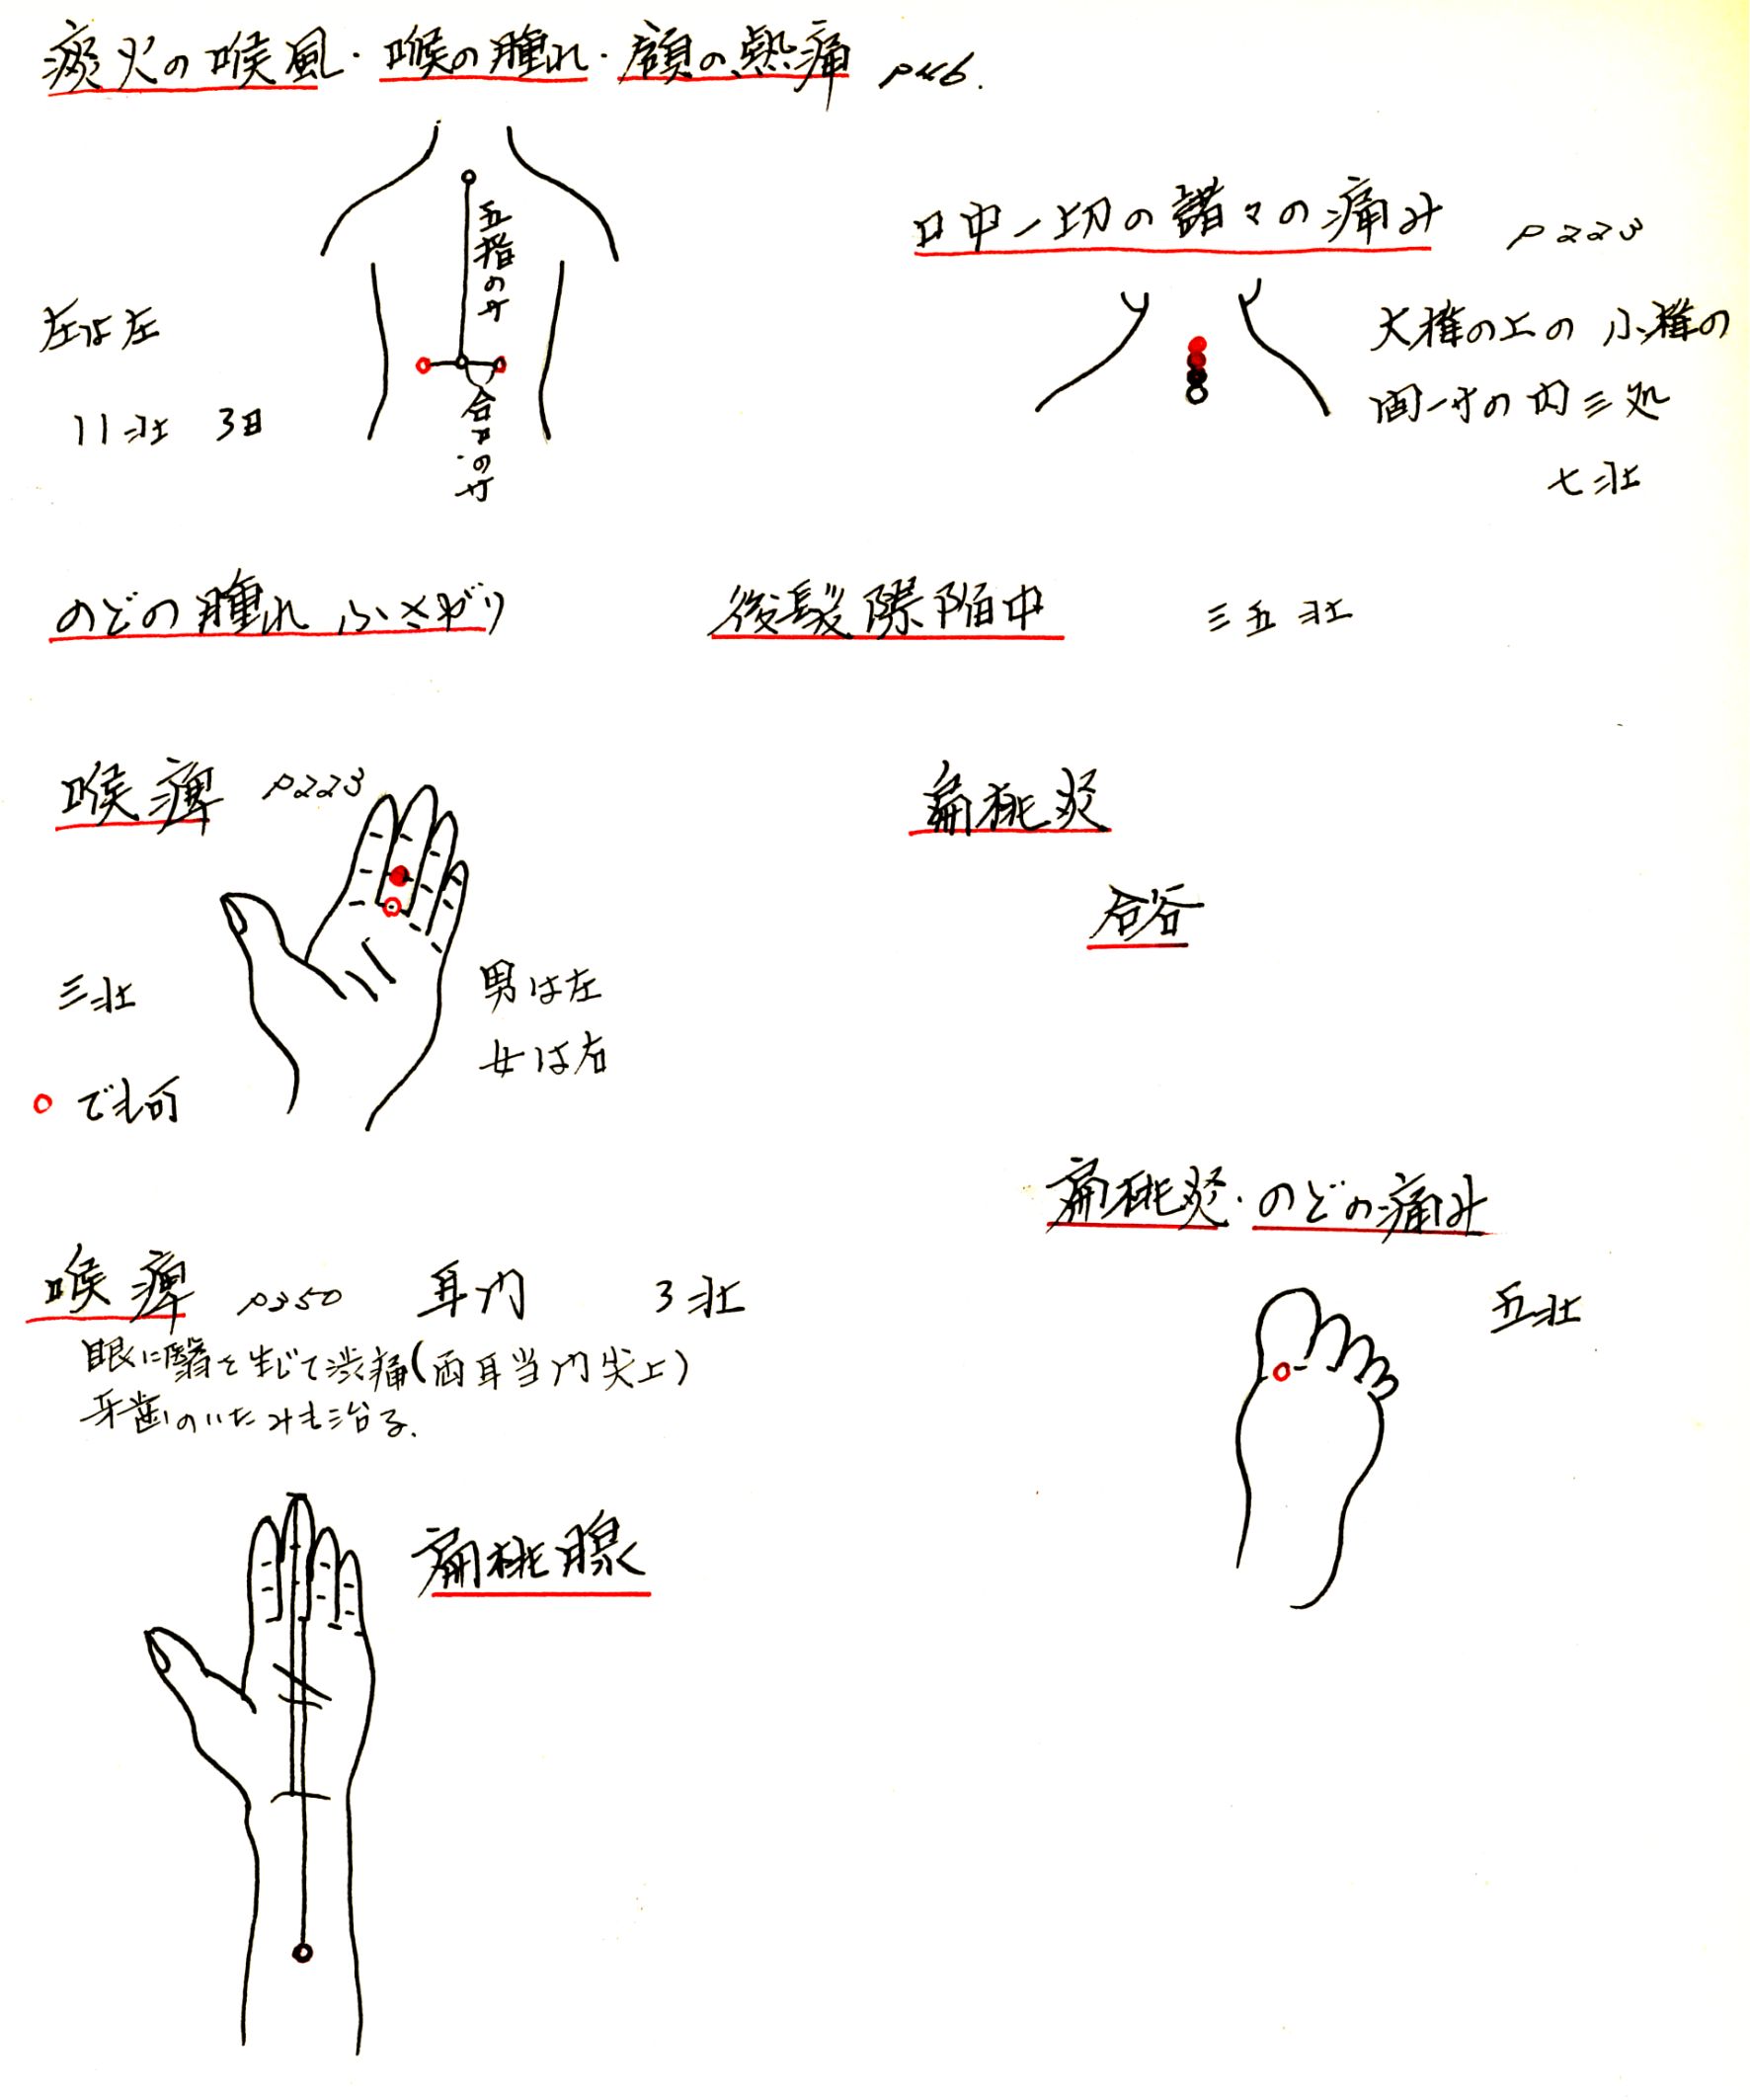 痰火の喉風・喉の腫れ・額の熱痛 P46.
五指の寸
左は左
11壮 3日
合口の寸
口中一切の諸々の痛み P223
大椎の上の小椎の
間一寸の内三処
七壮
のどの腫れふさがり 後髪際陥中 三五壮
喉痺 P223
三壮
男は左
女は右
○でも可
扁桃炎
合谷
扁桃炎・のどの痛み
五壮
喉痺 P350 耳門 3壮
眼に翳を生じて渋痛(両耳当門尖上)
牙歯のいたみも治る.
扁桃腺